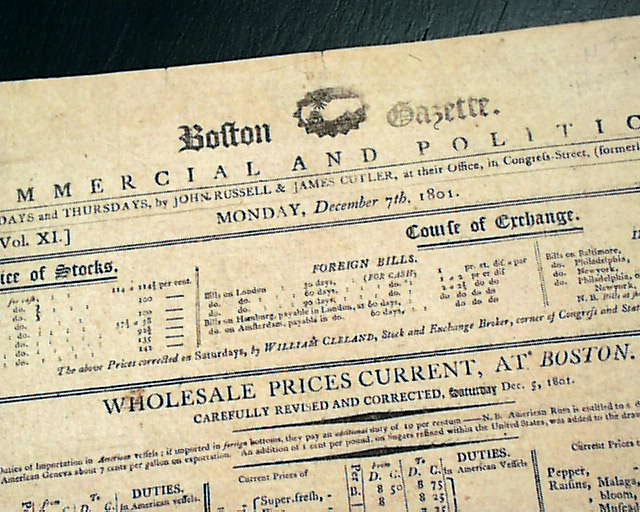 Boston Gazette.
MMERCIAL AND POLITIC
DAYS and THURSDAYS, by JOHN RUSSELL & JAMES CUTLER, at their Office, in Congress-Street, (formerl
Vol. XI.]
MONDAY, December 7th, 1801.
ice of Stocks.
Course of Exchange.
FOREIGN BILLS.
(FOR CASH)
per cent.
for cash,
do.
do.
do.
do.
do.
do.
100
100
135
142
Bills on London 30 days,
do. do. 60 days,
do. do. 90 days,
Bills on Hamburg, payable in London, at 60 days,
do. on Amsterdam, payable in do. 60 days,
Bills on Baltimore,
do. Philadelphia,
do. Newyork,
do. Philadelphia,
Newyork,
N. B. Bills at
The above Prices corrected on Saturdays, by WILLIAM CLELAND, Stock and Exchange Broker, corner of Congress and Stat
WHOLESALE PRICES CURRENT, AT BOSTON.
CAREFULLY REVISED AND CORRECTED, Saturday Dec. 5, 1801.
Duties of Importation in American vessels; if imported in foreign bottoms, they pay an additional duty of 10 per centum—N. B. American Rum is entitled to a d
American Geneva about 7 cents per gallon on exportation. An addition of 1 cent per pound, on sugars refined within the United States, was added to the draw
from To
D. C. D. C.
DUTIES.
In American vessels.
Current Prices of
Super. fresh,
Per
B.
from To
D. C. D. C.
8 50 8 75
8 8 25
DUTIES.
In American Vessels
Current Prices
Pepper,
Raisins, Malaga,
bloom,
Musca